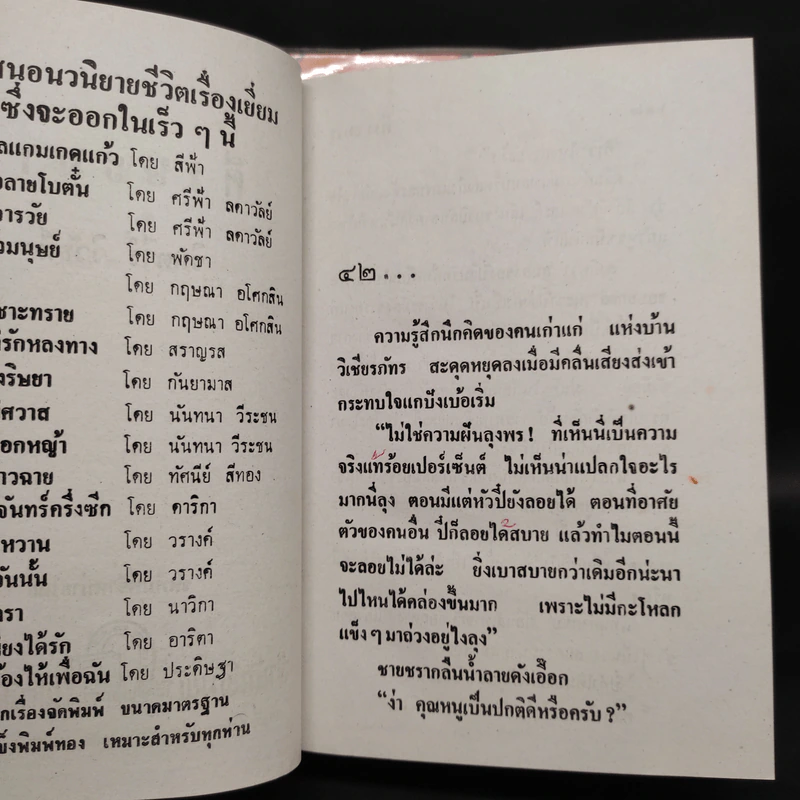 สนอนวนิยายชีวิตเรื่องเยี่ยม
ซึ่งจะออกในเร็ว ๆ นี้
ลแกมเกดแก้ว โดย สีฟ้า
ลายโบตั๋น โดย ศรีฟ้า ลดาวัลย์
ารวัย โดย ศรีฟ้า ลดาวัลย์
วมนุษย์ โดย พัดชา
โดย กฤษณา อโศกสิน
ชาะทราย โดย กฤษณา อโศกสิน
รักหลงทาง โดย สราญรส
งริษยา โดย กันยามาส
ศวาส โดย นันทนา วีระชน
อกหญ้า โดย นันทนา วีระชน
าวฉาย โดย ทัศนีย์ สีทอง
จันทร์ครึ่งซีก โดย ดาริกา
หวาน โดย วรางค์
วันนั้น โดย วรางค์
ารา โดย นาวิกา
ียงได้รัก โดย อาริตา
้องไห้เพื่อฉัน โดย ประดิษฐา
กเรื่องจัดพิมพ์ ขนาดมาตรฐาน
ข็งพิมพ์ทอง เหมาะสำหรับทุกท่าน
๔๒...
ความรู้สึกนึกคิดของคนเก่าแก่ แห่งบ้าน
วิเชียรภัทร สะดุดหยุดลงเมื่อมีคลื่นเสียงส่งเข้า
กระทบใจแกบังเบ้อเริ่ม
“ไม่ใช่ความฝันลุงพร! ที่เห็นนี่เป็นความ
จริงแท้ร้อยเปอร์เซ็นต์ ไม่เห็นน่าแปลกใจอะไร
มากนี่ลุง ตอนมีแต่หัวปี่ยังลอยได้ ตอนที่อาศัย
ตัวของคนอื่น ปี่ก็ลอยได้สบาย แล้วทำไมตอนนี้
จะลอยไม่ได้ล่ะ ยิ่งเบาสบายกว่าเดิมอีกน่ะนา
ไปไหนได้คล่องขึ้นมาก เพราะไม่มีกะโหลก
แข็ง ๆ มาถ่วงอยู่ไงลุง”
ชายชรากลืนน้ำลายดังเอื๊อก
“ง่า คุณหนูเป็นปกติดีหรือครับ?”